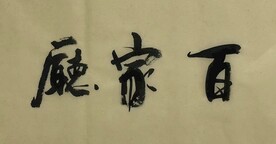 百家廳